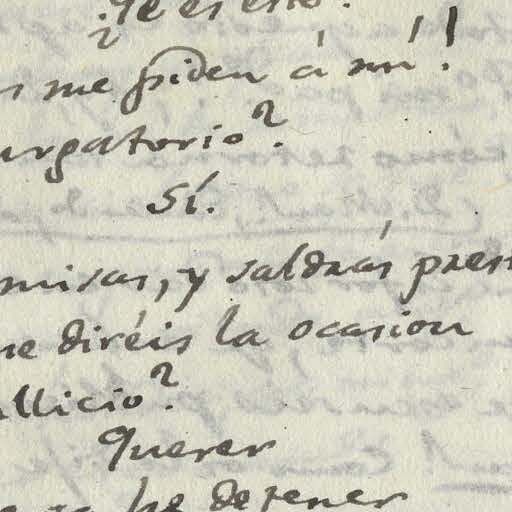 es esto?
me piden á mí!
urgatorio?
Sí.
misas, y saldrás prest
me diréis la ocasion
ullicio?
Querer
he de tener